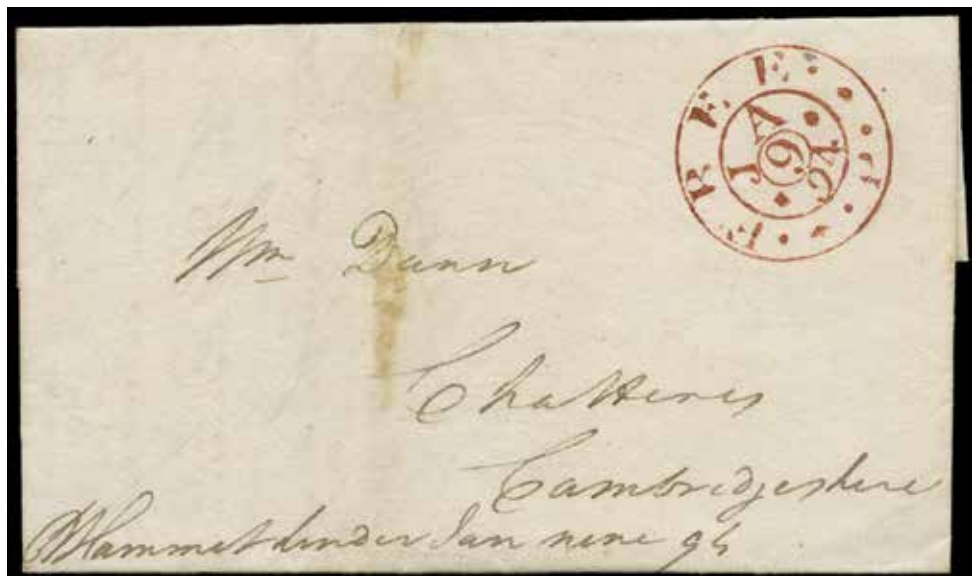 FREE
JA
9
Wm Dunn
Chatteris
Cambridgeshire
Hammet London Jan nine 95